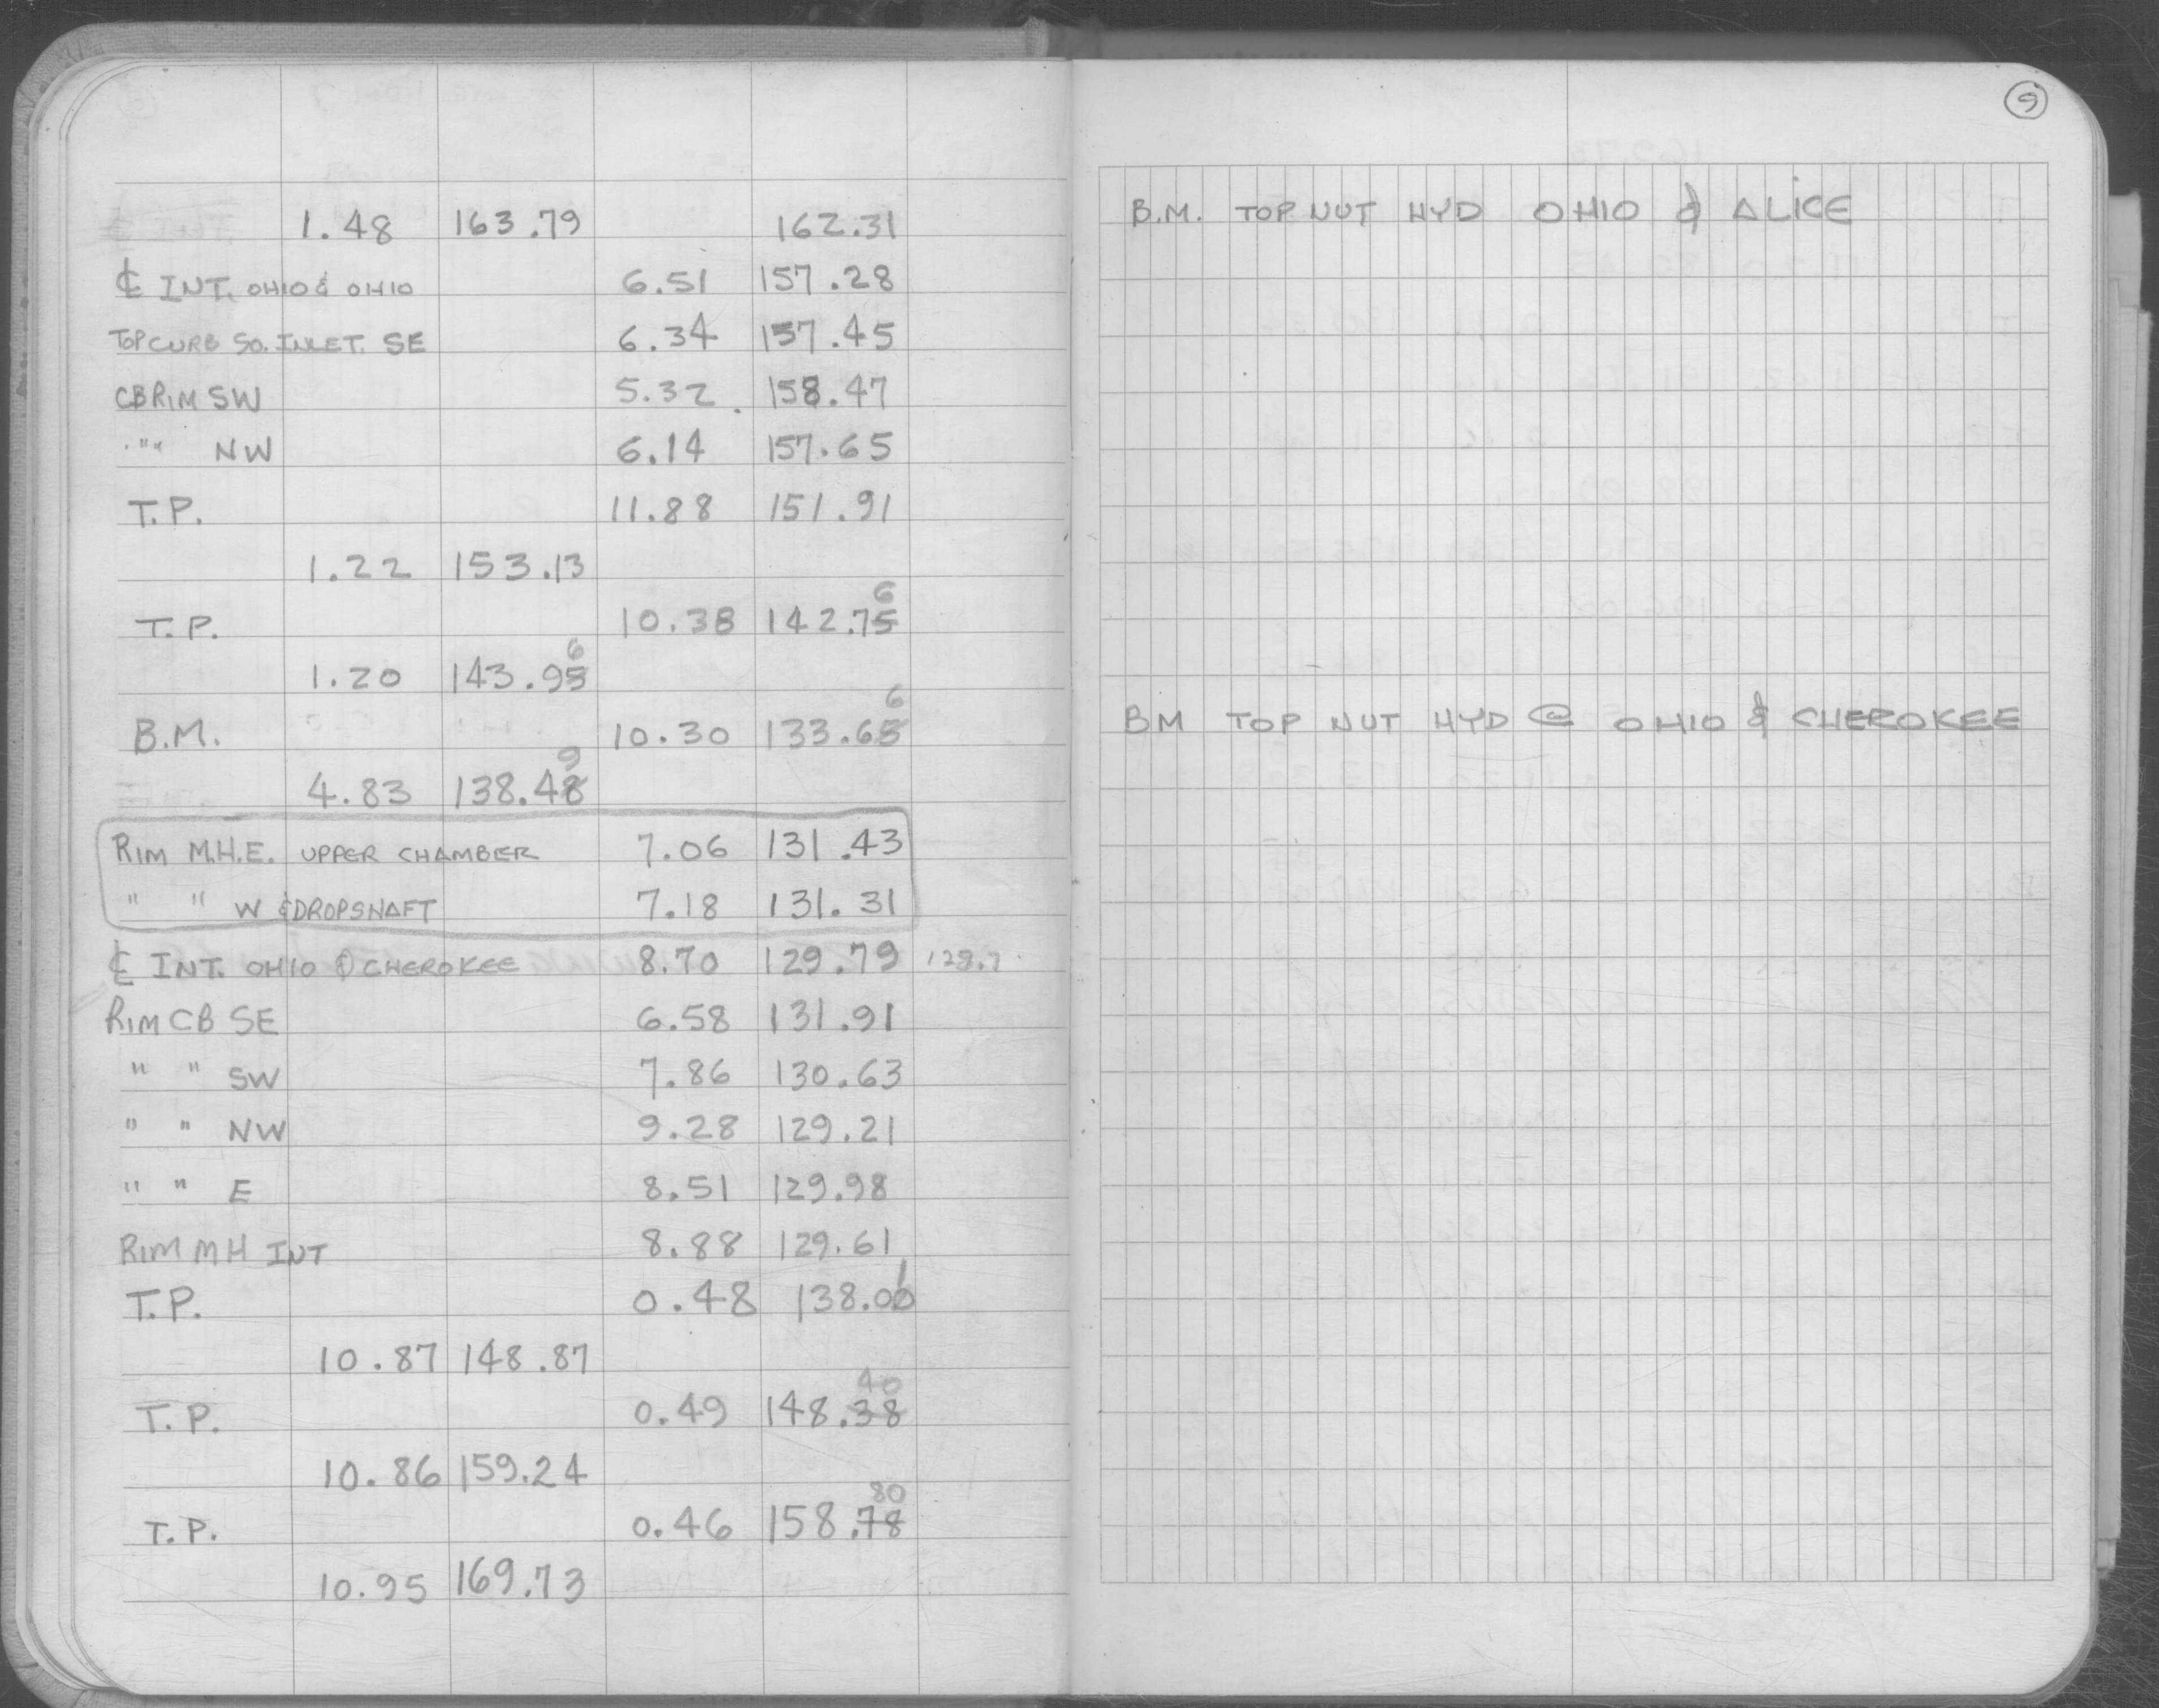 9
1.48 163.79 162.31 B.M. TOP NUT HYD OHIO & ALICE
℄ INT. OHIO & OHIO 6.51 157.28
TOP CURB SO. INLET. SE 6.34 157.45
CB RIM SW 5.32 158.47
" " NW 6.14 157.65
T.P. 11.88 151.91
1.22 153.13
6
T.P. 10.38 142.75
6
1.20 143.95
6
B.M. 10.30 133.65 BM TOP NUT HYD @ OHIO & CHEROKEE
9
4.83 138.48
RIM M.H.E. UPPER CHAMBER 7.06 131.43
" " W & DROPSHAFT 7.18 131.31
℄ INT. OHIO & CHEROKEE 8.70 129.79 129.7
RIM CB SE 6.58 131.91
" " SW 7.86 130.63
" " NW 9.28 129.21
" " E 8.51 129.98
RIM MH INT 8.88 129.61
1
T.P. 0.48 138.00
10.87 148.87
40
T.P. 0.49 148.38
10.86 159.24
80
T.P. 0.46 158.78
10.95 169.73